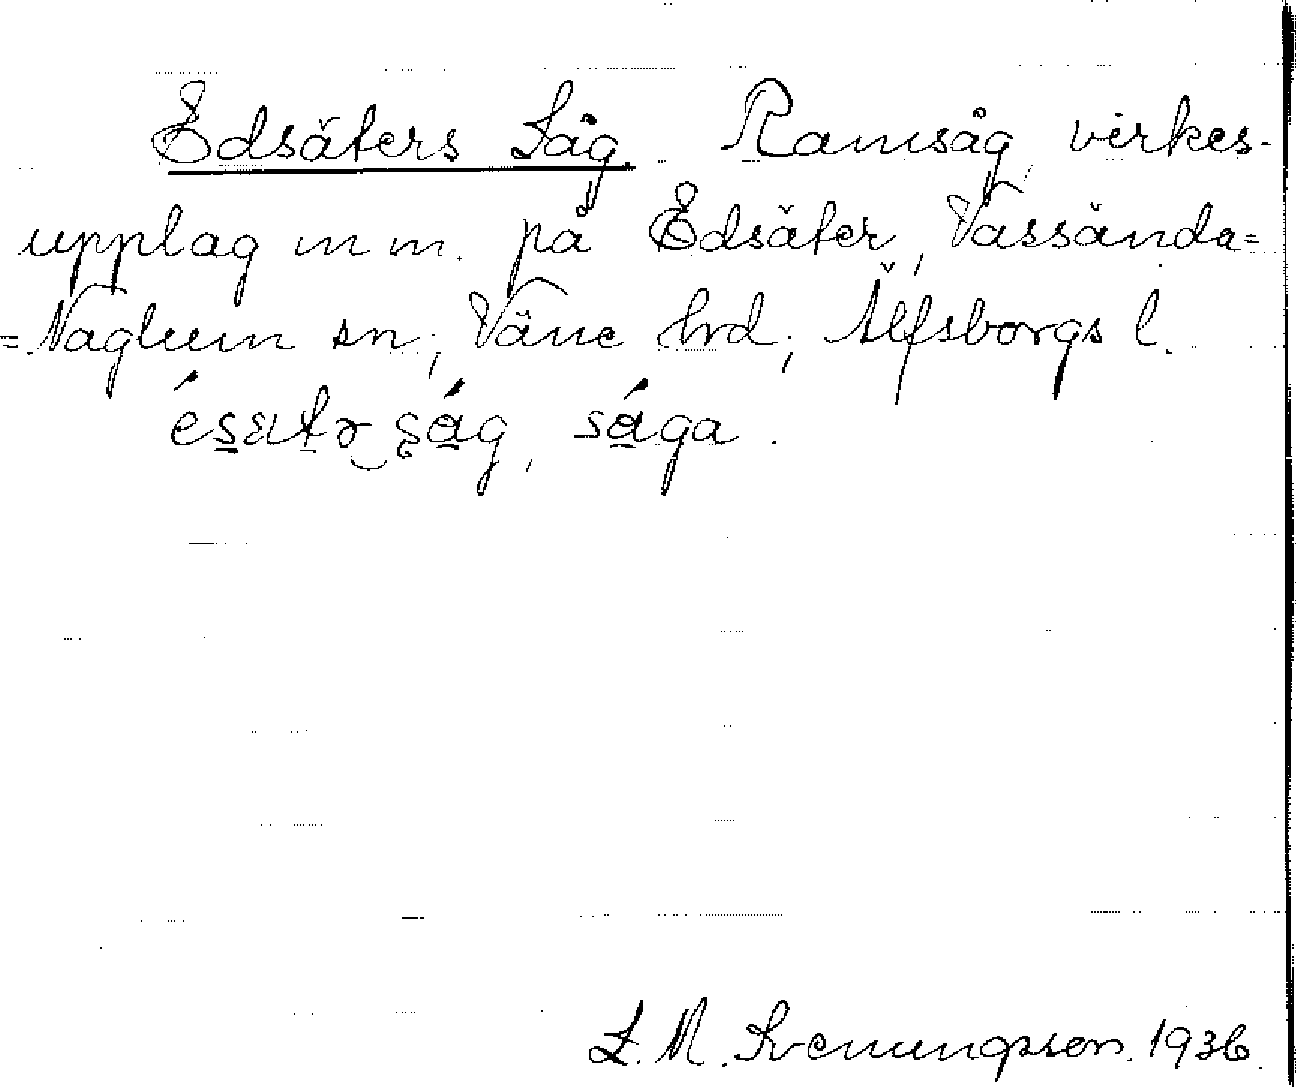 Edsäters Såg. Ramsåg, virkes-
upplag m m. på Edsäter, Vassända=
=Naglum sn; Väne hrd; Älfsborgs l.
ság, sága.
L. M. Svenungsson. 1936.